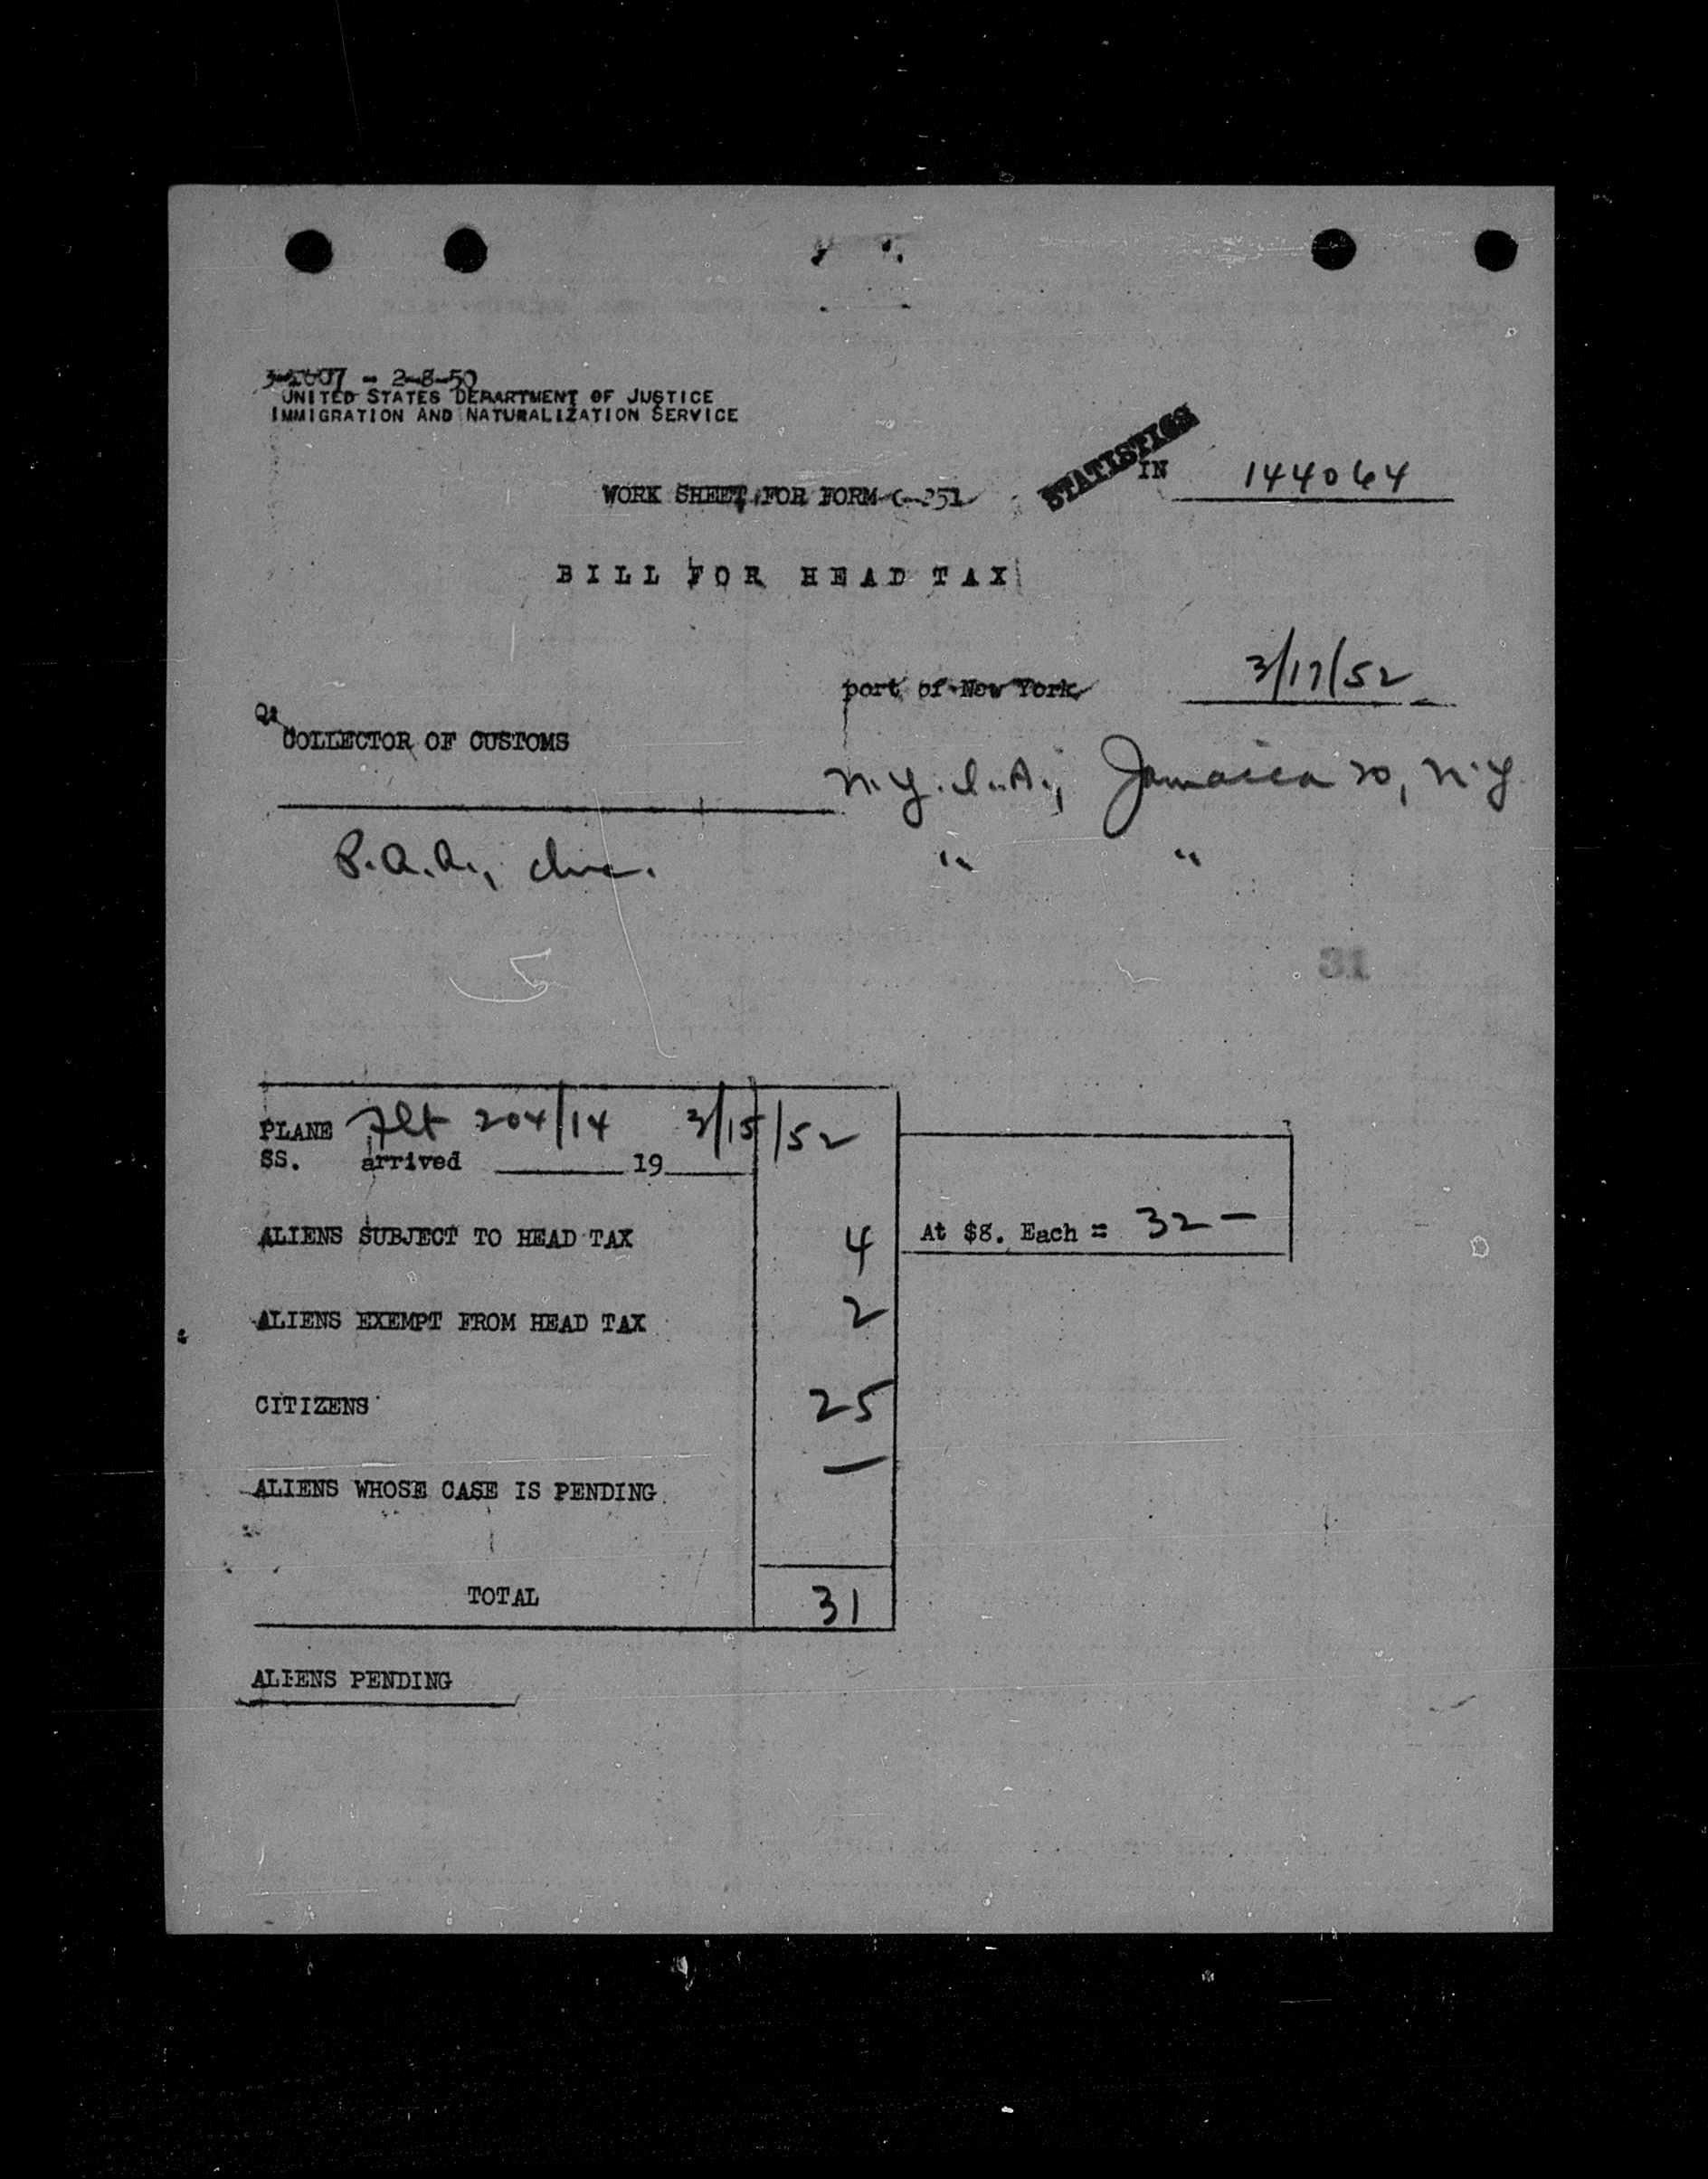 - 2-8-50
UNITED STATES DEPARTMENT OF JUSTICE
IMMIGRATION AND NATURALIZATION SERVICE
STATISTICS
IN 144064
WORK SHEET FOR FORM
BILL FOR HEAD TAX
port of New York 3/17/52
COLLECTOR OF CUSTOMS
N.Y.I.A., Jamaica 20, N.Y.
P.A.A., Inc. " "
31
PLANE Flt 204/14 3/15/52
SS. arrived 19
ALIENS SUBJECT TO HEAD TAX 4 At $8. Each = 32 —
ALIENS EXEMPT FROM HEAD TAX 2
CITIZENS 25
ALIENS WHOSE CASE IS PENDING —
TOTAL 31
ALIENS PENDING